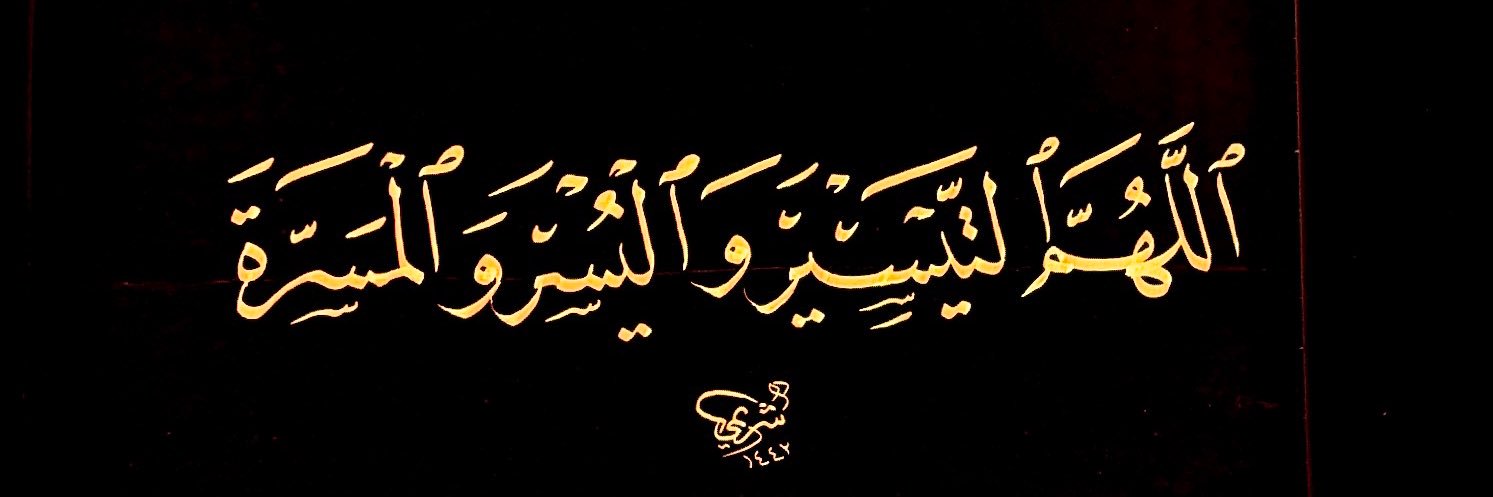 ٱللَّهُمَّ ٱلتَّيْسِيْرَ وَ ٱلْيُسْرَ وَ ٱلْمَسَرَّةَ
١٤٤٢